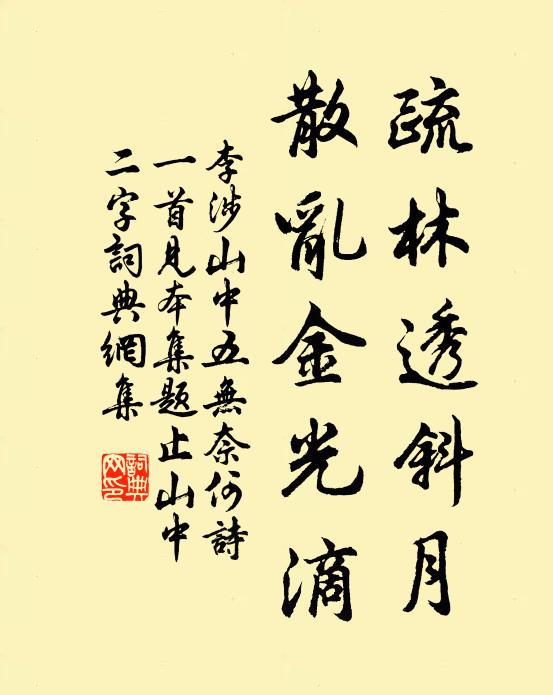 疏林透斜月
散亂金光滴
李涉山中五無奈何詩
一首見本集題止山中
二字詞典網集
詞典
网印